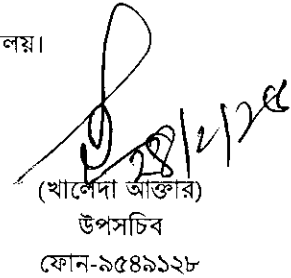 লয়।
২৪/২/২৫
(খালেদা আক্তার)
উপসচিব
ফোন-৯৫৪৯১২৮